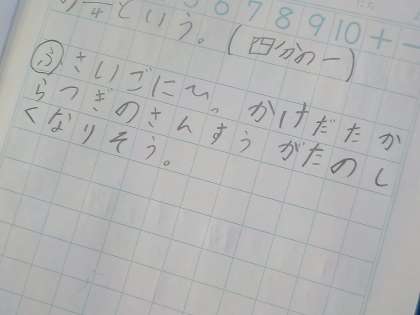 5 6 7 8 9 10 + −
という。(四分の一)
ふ さいごに かけだたか
らつぎのさんすうがたのし
くなりそう。